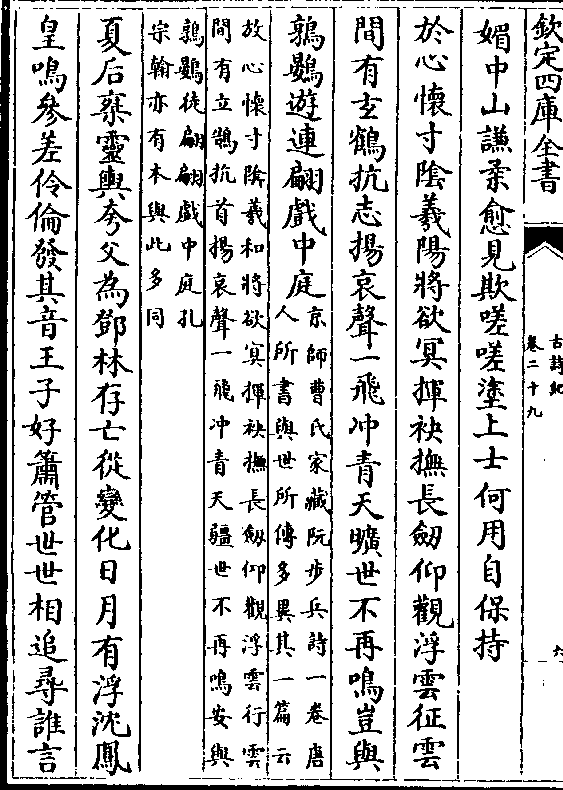 欽定四庫全書
古詩紀
卷二十九
六
媚中山謙柔愈見欺嗟嗟塗上士何用自保持
於心懷寸陰羲陽將欲冥揮袂撫長劒仰觀浮雲征雲
間有𤣥鶴抗志揚哀聲一飛冲青天曠世不再鳴豈與
鶉鷃遊連翩戲中庭
京師曹氏家藏阮步兵詩一卷唐
人所書與世所傳多異其一篇云
放心懷寸隂羲和將欲冥揮袂撫長劒仰觀浮雲行雲
間有立鵠抗首揚哀聲一飛冲青天彊世不再鳴安與
鶉鷃徒翩翩戲中庭孔
宗翰亦有本與此多同
夏后乗靈輿夸父為鄧林存亡從變化日月有浮沈鳳
皇鳴參差伶倫發其音王子好簫管世世相追尋誰言